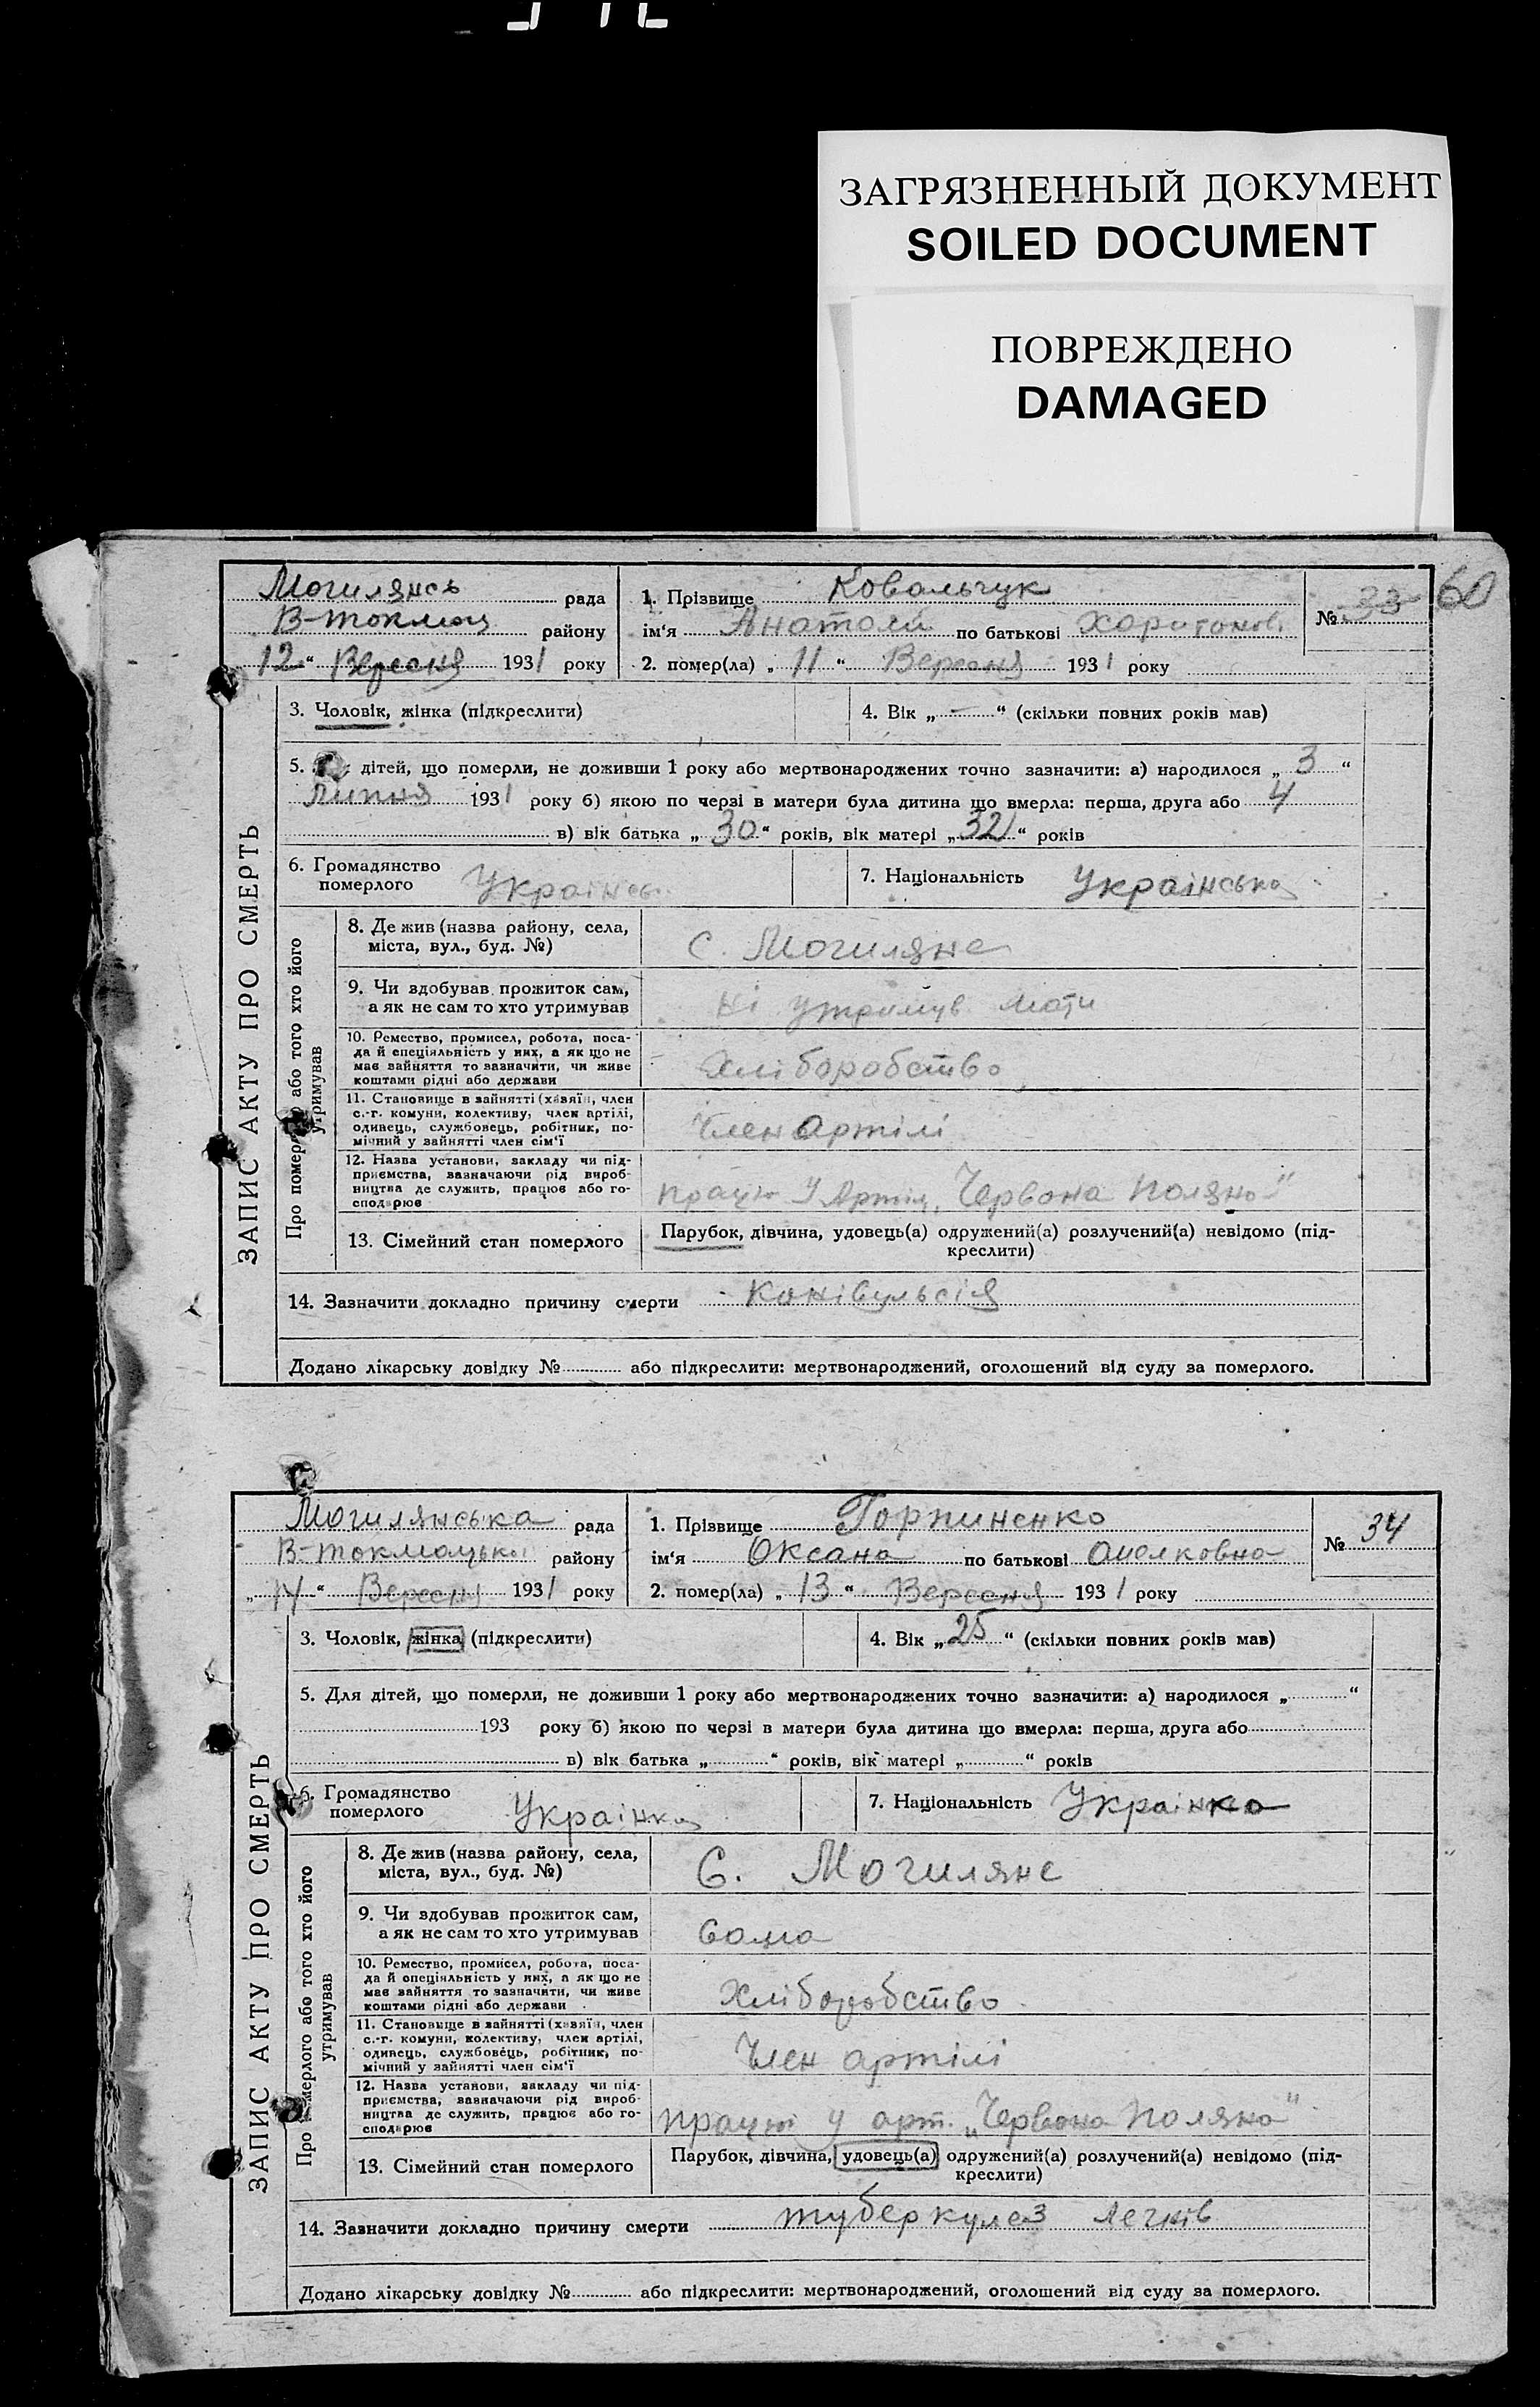 ЗАГРЯЗНЕННЫЙ ДОКУМЕНТ
SOILED DOCUMENT
ПОВРЕЖДЕНО
DAMAGED
60
ЗАПИС АКТУ ПРО СМЕРТЬ
Могилянсь рада
В-токмац району
12 “ Вересня 1931 року
1. Прізвище Ковальчук
ім‘я Анатолій по батькові Харитонов
№ 33
2. помер(ла) „ 11 “ Вересня 1931 року
3. Чоловік, жінка (підкреслити)
4. Вік „ — “ (скільки повних років мав)
5. дітей, що померли, не доживши 1 року або мертвонароджених точно зазначити: а) народилося „ 3 “
Липня 1931 року б) якою по черзі в матери була дитина що вмерла: перша, друга або 4
в) вік батька „ 30 “ років, вік матері „ 32 “ років
6. Громадянство
померлого Українсь
7. Національність Українська
Про померлого або того хто його
утримував
8. Де жив (назва району, села,
міста, вул., буд. №)
С. Могиляне
9. Чи здобував прожиток сам,
а як не сам то хто утримував
ні утримув мати
10. Ремество, промисел, робота, поса-
да й спеціяльність у них, а як що не
має зайняття то зазначити, чи живе
коштами рідні або держави
Хліборобство
11. Становище в зайнятті (хазяїн, член
с.-г. комуни, колективу, член артілі,
одинець, службовець, робітник, по-
мічний у зайнятті член сім‘ї
Член артілі
12. Назва установи, закладу чи під-
приємства, зазначаючи рід вироб-
ництва де служить, працює або го-
сподарює
працю у Артіл „Червона Поляна“
13. Сімейний стан померлого
Парубок, дівчина, удовець(а) одружений(а) розлучений(а) невідомо (під-
креслити)
14. Зазначити докладно причину смерти Конівульсія
Додано лікарську довідку № або підкреслити: мертвонароджений, оголошений від суду за померлого.
ЗАПИС АКТУ ПРО СМЕРТЬ
Могилянська рада
В-токмацько району
„ 14 “ Вересня 1931 року
1. Прізвище Горпиненко
ім‘я Оксана по батькові
№ 34
2. помер(ла) „ 13 “ Вересня 1931 року
3. Чоловік, жінка (підкреслити)
4. Вік „ 25 “ (скільки повних років мав)
5. Для дітей, що померли, не доживши 1 року або мертвонароджених точно зазначити: а) народилося „ “
193 року б) якою по черзі в матери була дитина що вмерла: перша, друга або
в) вік батька „ “ років, вік матері „ “ років
6. Громадянство
померлого Українка
7. Національність Українка
Про померлого або того хто його
утримував
8. Де жив (назва району, села,
міста, вул., буд. №)
С. Могиляне
9. Чи здобував прожиток сам,
а як не сам то хто утримував
Сама
10. Ремество, промисел, робота, поса-
да й спеціяльність у них, а як що не
має зайняття то зазначити, чи живе
коштами рідні або держави
Хліборобство
11. Становище в зайнятті (хазяїн, член
с.-г. комуни, колективу, член артілі,
одинець, службовець, робітник, по-
мічний у зайнятті член сім‘ї
Член артілі
12. Назва установи, закладу чи під-
приємства, зазначаючи рід вироб-
ництва де служить, працює або го-
сподарює
працює у арт. „Червона Поляна“
13. Сімейний стан померлого
Парубок, дівчина, удовець(а) одружений(а) розлучений(а) невідомо (під-
креслити)
14. Зазначити докладно причину смерти туберкулез легнів
Додано лікарську довідку № або підкреслити: мертвонароджений, оголошений від суду за померлого.